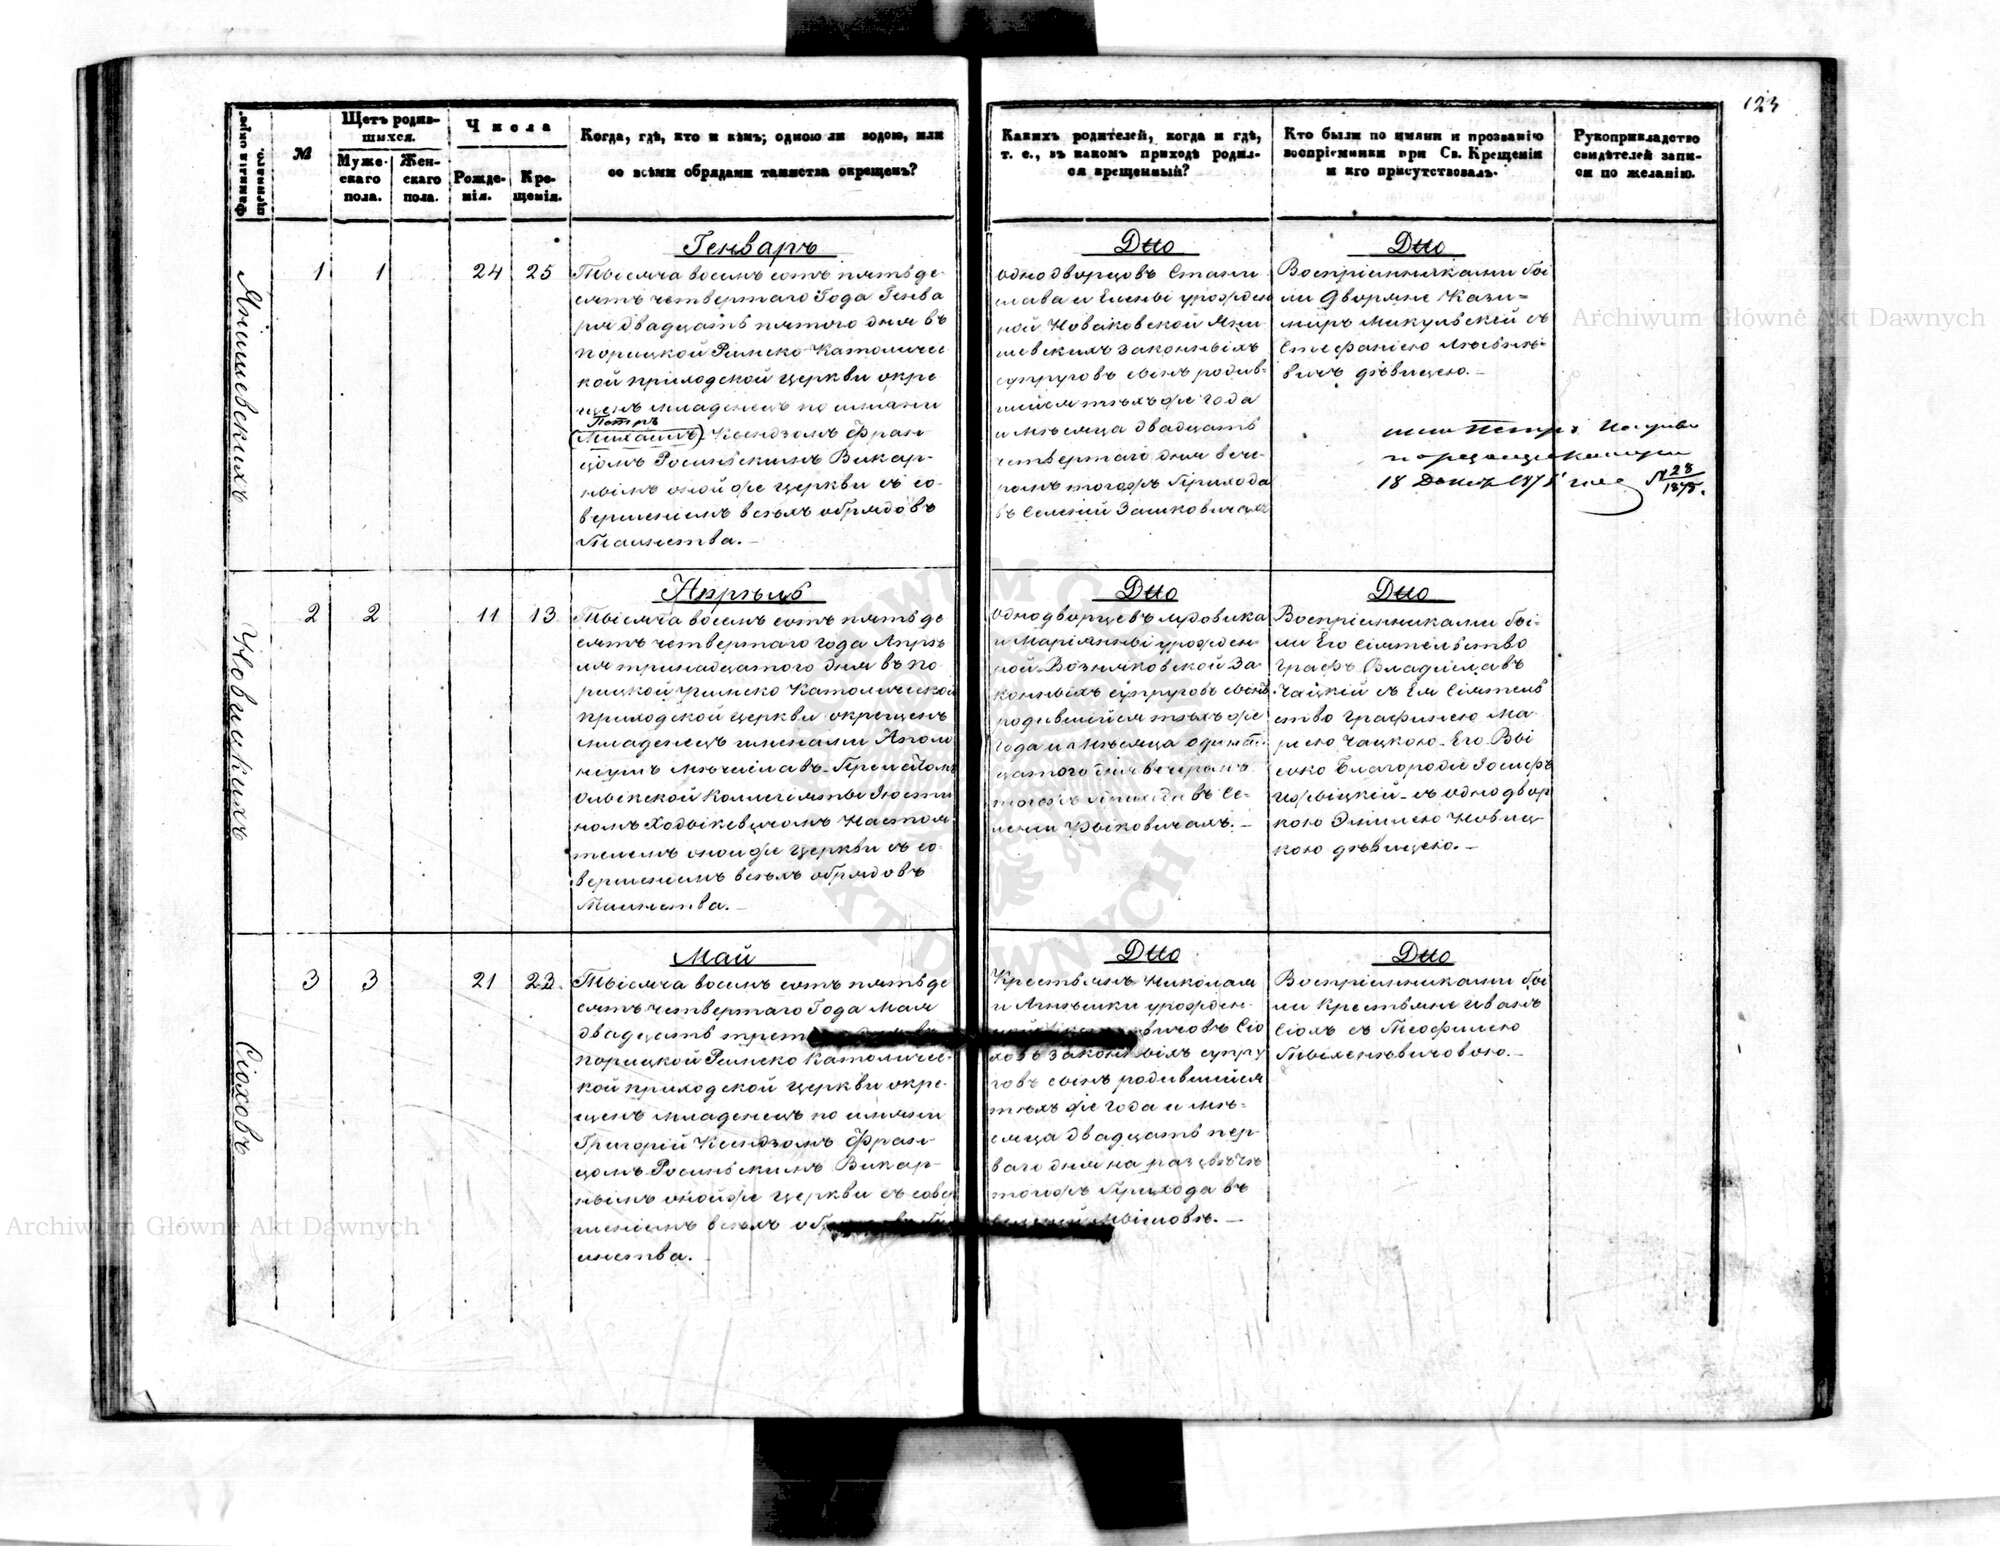 123
Фамилія окре-
щеннаго.
№
Щетъ родив-
шихся.
Муже-
скаго
пола.
Жен-
скаго
пола.
Числа
Рожде-
нія.
Кре-
щенія.
Когда, гдѣ, кто и кѣмъ; одною ли водою, или
со всѣми обрядами таинства окрещенъ?
Какихъ родителей, когда и гдѣ,
т. е., въ какомъ приходѣ родил-
ся крещенный?
Кто были по имяни и прозванію
воспріемники при Св. Крещеніи
и кто присутствовалъ.
Рукоприкладство
свидѣтелей запи-
си по желанію.
Янишевскихъ
1 1 24 25
Генварь
Тысяча восемь сотъ пятьде-
сятъ четвертаго Года Генва
ря двадцать пятого дня въ
Порицкой Римско-Католичес-
кой приходской церкви окре
щенъ младенецъ по имяни
Петръ
(Михаилъ) Ксендзомъ Фран-
цомъ Росинскимъ Викар-
нымъ оной же церкви съ со-
вершеніемъ всѣхъ обрядовъ
Таинства. —
Dtto
однодворцовъ Стани
слава и Елены урожден
ной Новаковской Яни-
шевскихъ законныхъ
супруговъ сынъ родив-
шійся тѣхъ же года
и мѣсяца двадцать
четвертаго дня вече-
ромъ тогожъ Прихода
въ Селеніи Зашковичахъ
Dtto
Воспріемниками бы-
ли Дворяне Кази-
миръ Микульскій съ
Стефаніею
дѣвицею. —
Петръ
18 1878 года № 28/1878.
Новицкихъ
2 2 11 13
Апрѣль
Тысяча восемь сотъ пятьде
сятъ четвертаго года Апрѣ
ля тринадцатого дня въ По-
рицкой Римско Католической
приходской церкви окрещенъ
младенецъ именами Аполо
нӣушъ Мѣчиславъ Прелатомъ
Олыкской Коллегіяты Юсти
номъ Ходыкевичомъ Настоя-
телемъ оной же церкви съ со-
вершеніемъ всѣхъ обрядовъ
Таинства. —
Dtto
Однодворцевъ Людовика
и Маріянны урожден-
ной Возняковской За-
конныхъ супруговъ сынъ
родившійся тѣхъ же
года и мѣсяца одинат-
цатого дня вечеромъ
тогожъ Прихода въ Се-
леніи Рыковичахъ. —
Dtto
Воспріемниками бы-
ли Его Сіятельство
Графъ Владиславъ
Чацкій съ Ея Сіятель
ство Графинею Ма-
ріею Чацкою Его Вы
соко Благородіе Іосифъ
съ однодвор
кою Эмилею Новиц-
кою дѣвицею. —
Сіоховъ
3 3 21 23
Май
Тысяча восемь сотъ пятьде
сятъ четвертаго Года Мая
двадцать трет
Порицкой Римско Католичес-
кой приходской церкви окре-
щенъ младенецъ по имяни
Григорій Ксендзомъ Фран-
цомъ Росинскимъ Викар-
нымъ оной же церкви съ совер
шеніемъ всѣхъ
инства. —
Dtto
Крестьянъ Николая
и Агнѣшки урожден-
вичовъ Сіо
ховъ законныхъ супру
говъ сынъ родившійся
тѣхъ же года и мѣ-
сяца двадцать пер-
ваго дня на разсвѣтѣ
тогожъ Прихода въ
Мышовѣ. —
Dtto
Воспріемниками бы-
ли Крестьяне Иванъ
Сіохъ съ Теофилею
Archiwum Główne Akt Dawnych
Archiwum Główne Akt Dawnych